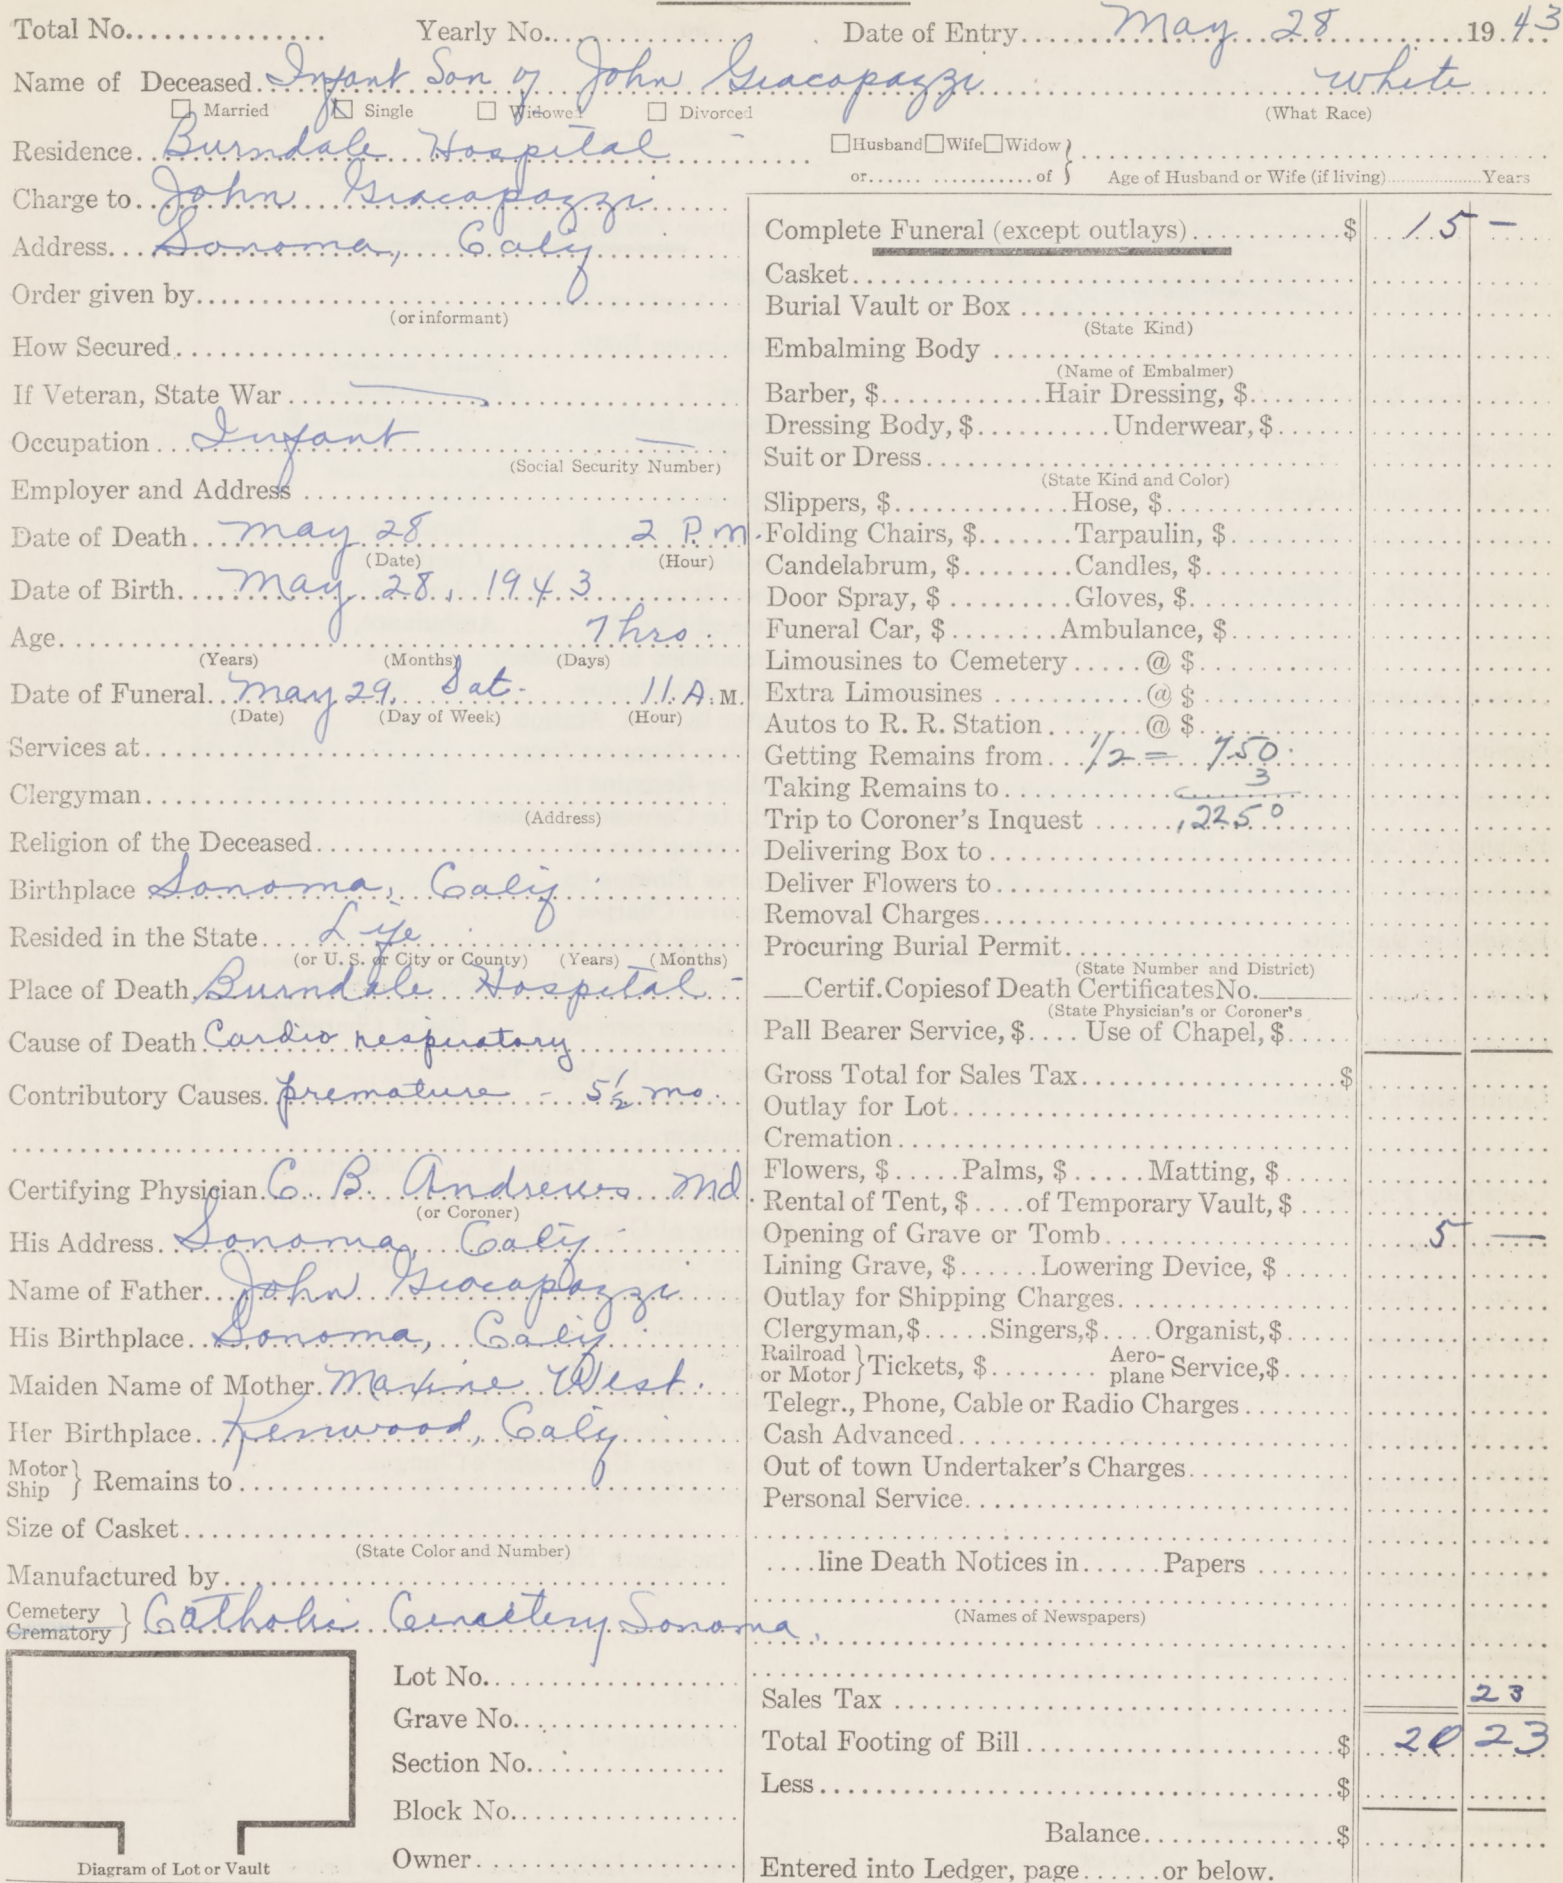 Total No............... Yearly No............... Date of Entry...... May 28 ..........19.43
Name of Deceased Infant Son of John Giacopazzi white
☐ Married ☒ Single ☐ Widowed ☐ Divorced (What Race)
Residence Burndale Hospital
☐Husband☐Wife☐Widow
or...... ............of } Age of Husband or Wife (if living)...............Years
Charge to John Giacopazzi
Address Sonoma, Calif
Order given by
(or informant)
How Secured
If Veteran, State War —
Occupation Infant —
(Social Security Number)
Employer and Address
Date of Death May 28 2 P.M.
(Date) (Hour)
Date of Birth May 28, 1943
Age 7 hrs.
(Years) (Months) (Days)
Date of Funeral May 29, Sat. 11 A.M.
(Date) (Day of Week) (Hour)
Services at
Clergyman
(Address)
Religion of the Deceased
Birthplace Sonoma, Calif
Resided in the State Life
(or U. S. or City or County) (Years) (Months)
Place of Death Burndale Hospital
Cause of Death Cardio respiratory
Contributory Causes premature - 5½ mo.
Certifying Physician C. B. Andrews Md.
(or Coroner)
His Address Sonoma, Calif
Name of Father John Giacopazzi
His Birthplace Sonoma, Calif
Maiden Name of Mother Maxine West
Her Birthplace Kenwood, Calif
Motor Ship } Remains to
Size of Casket
(State Color and Number)
Manufactured by
Cemetery Crematory } Catholic Cemetery Sonoma,
Lot No.
Grave No.
Section No.
Block No.
Owner
Diagram of Lot or Vault
Complete Funeral (except outlays) $ 15 —
Casket
Burial Vault or Box
(State Kind)
Embalming Body
(Name of Embalmer)
Barber, $ Hair Dressing, $
Dressing Body, $ Underwear, $
Suit or Dress
(State Kind and Color)
Slippers, $ Hose, $
Folding Chairs, $ Tarpaulin, $
Candelabrum, $ Candles, $
Door Spray, $ Gloves, $
Funeral Car, $ Ambulance, $
Limousines to Cemetery @ $
Extra Limousines @ $
Autos to R. R. Station @ $
Getting Remains from 1/2 = 7.50
Taking Remains to 3
Trip to Coroner's Inquest .2250
Delivering Box to
Deliver Flowers to
Removal Charges
Procuring Burial Permit
(State Number and District)
Certif.Copiesof Death CertificatesNo.
(State Physician's or Coroner's
Pall Bearer Service, $ Use of Chapel, $
Gross Total for Sales Tax $
Outlay for Lot
Cremation
Flowers, $ Palms, $ Matting, $
Rental of Tent, $ of Temporary Vault, $
Opening of Grave or Tomb 5 —
Lining Grave, $ Lowering Device, $
Outlay for Shipping Charges
Clergyman,$ Singers,$ Organist,$
Railroad or Motor } Tickets, $ Aero-plane Service,$
Telegr., Phone, Cable or Radio Charges
Cash Advanced
Out of town Undertaker's Charges
Personal Service
....line Death Notices in......Papers
(Names of Newspapers)
Sales Tax 23
Total Footing of Bill $ 20 23
Less $
Balance $
Entered into Ledger, page......or below.